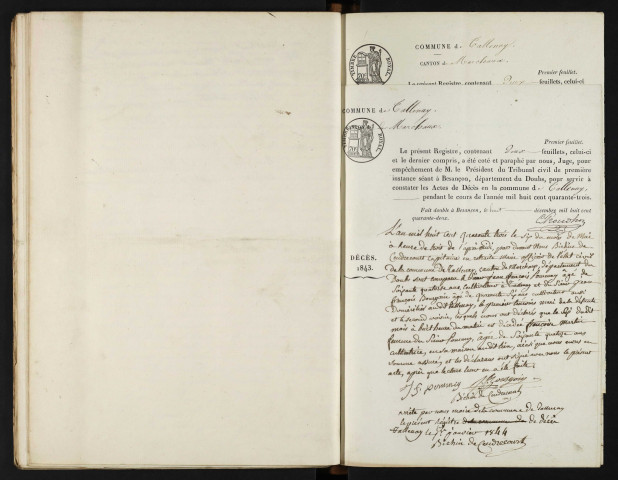 COMMUNE de Tallenay.
CANTON de Marchaux.
Premier feuillet.
Le présent Registre, contenant Deux feuillets, celui-ci
COMMUNE de Tallenay.
Marchaux.
Premier feuillet.
Le présent Registre, contenant Deux feuillets, celui-ci
et le dernier compris, a été coté et paraphé par nous, Juge, pour
empêchement de M. le Président du Tribunal civil de première
instance séant à Besançon, département du Doubs, pour servir à
constater les Actes de Décès en la commune de Tallenay,
pendant le cours de l'année mil huit cent quarante-trois.
Fait double à Besançon, le huit décembre mil huit cent
quarante-deux.
DÉCÈS.
1843.
L'an mil huit cent quarante trois le six du mois de Mai
à heure de trois de l'après midi, par devant nous
capitaine en retraite Maire officier de l'état civil
de la commune de Tallenay, canton de Marchaux, département du
Doubs sont comparus le Sieur jean françois pourny âgé de
Soixante quatorze ans cultivateur à Tallenay et le Sieur jean
françois âgé de quarante ans cultivateur aussi
Domicilié audit Tallenay, le premier témoin mari de la défunte
et le second voisin, lesquels nous ont déclarés que le six dudit
mois à huit heure du matin est décédée françoise
femme du Sieur pourny, âgée de Soixante quatorze ans
cultivatrice, en sa maison audit lieu, ainsi que nous nous en
somme assuré, et les déclarans ont signé avec nous le présent
acte, après que lecture leur en a été faite.
J f pourny
arrêté par nous maire de la commune de Tallenay
le présent régistre de décès
Tallenay le 1er janvier 1844